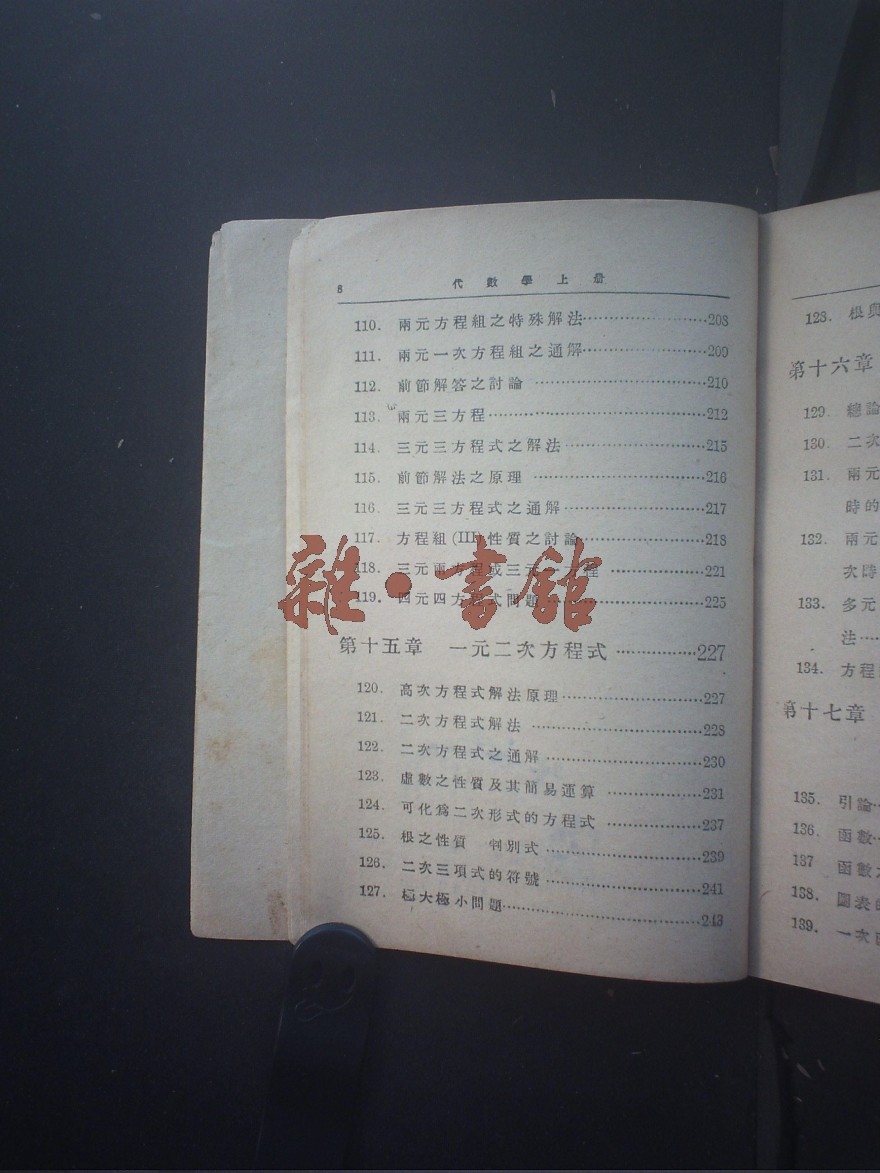 8 代數學上册
110. 兩元方程組之特殊解法……………………208
111. 兩元一次方程組之通解……………………209
112. 前節解答之討論……………………210
113. 兩元三方程……………………212
114. 三元三方程式之解法……………………215
115. 前節解法之原理……………………216
116. 三元三方程式之通解……………………217
117. 方程組(III)性質之討論……………………218
118. 三元兩方程或三元一方程……………………221
119. 四元四方程式問題……………………225
第十五章 一元二次方程式……………227
120. 高次方程式解法原理……………………227
121. 二次方程式解法……………………228
122. 二次方程式之通解……………………230
123. 虛數之性質及其簡易運算……………………231
124. 可化爲二次形式的方程式……………………237
125. 根之性質 判別式……………………239
126. 二次三項式的符號……………………241
127. 極大極小問題……………………243
雜·書館
128. 根與
第十六章
129. 總論
130. 二次
131. 兩元
時的
132. 兩元
次時
133. 多元
法……
134. 方程
第十七章
135. 引論…
136. 函數…
137 函數之
138. 圖表的
139. 一次函